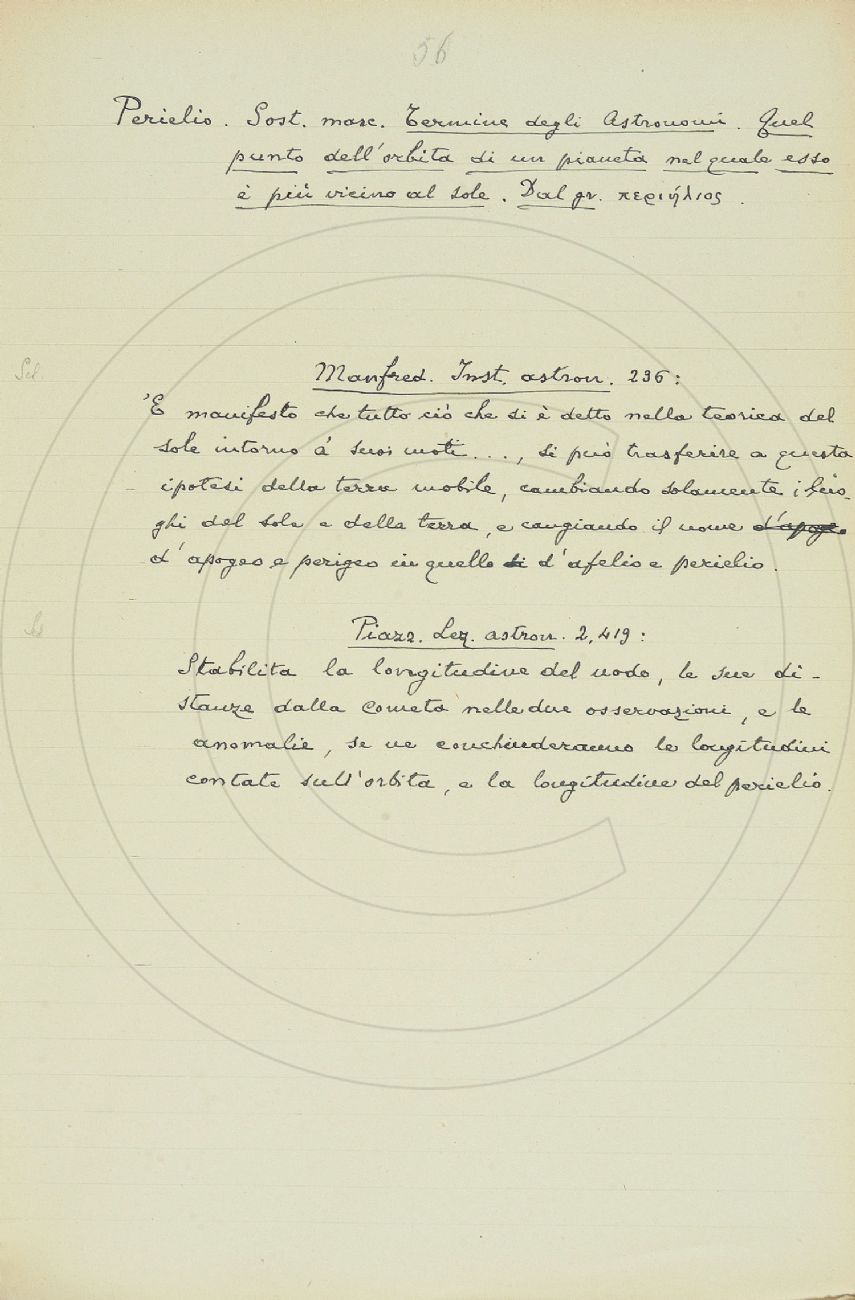 56
Perielio. Sost. masc. Termine degli Astronomi. Quel
punto dell'orbita di un pianeta nel quale esso
è più vicino al sole. Dal gr. περιήλιος.
Manfred. Inst. astron. 236:
'E manifesto che tutto ciò che si è detto nella teorica del
sole intorno a' suoi moti..., si può trasferire a questa
ipotesi della terra mobile, cambiando solamente i luo-
ghi del sole e della terra, e cangiando il nome d'apoge
d'apogeo e perigeo in quello di d'afelio e perielio.
Piazz. Lez. astron. 2, 419:
Stabilita la longitudine del nodo, le sue di-
stanze dalla cometa nelle due osservazioni, e le
anomalie, se ne conchiuderanno le longitudini
contate sull'orbita, e la longitudine del perielio.